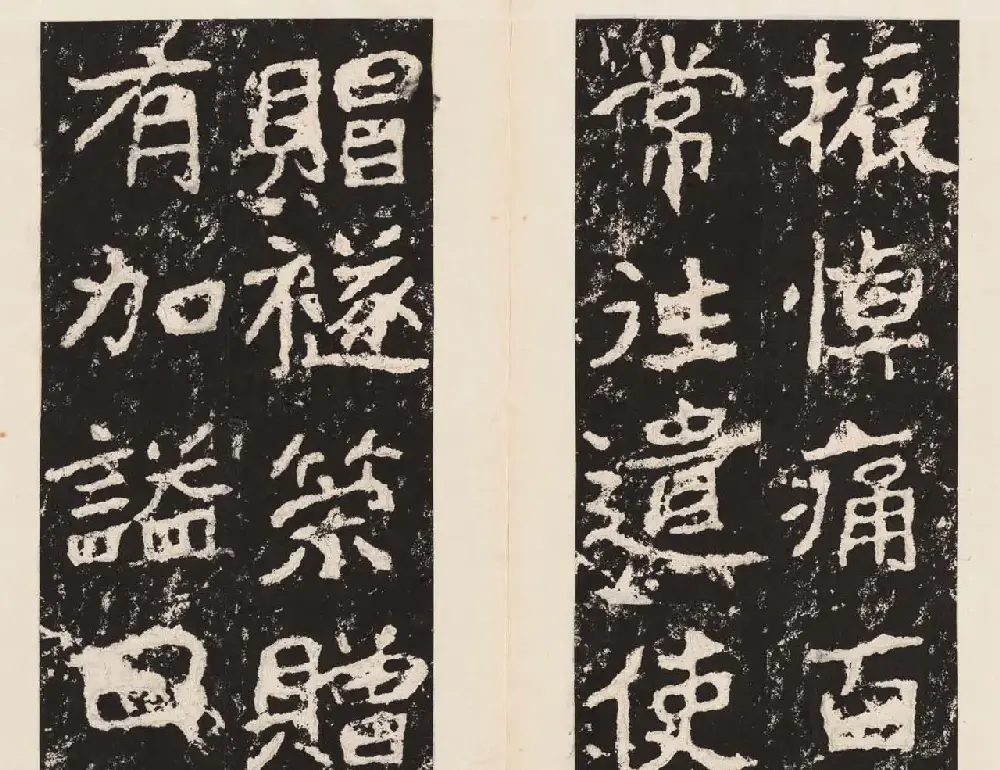 振悼痛百
常往遣使
賵襚策贈
有加謚曰